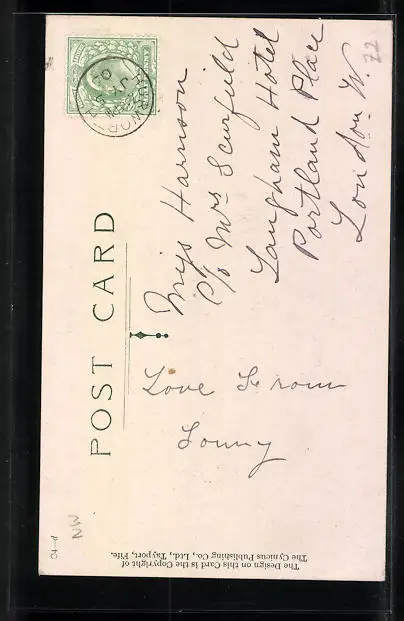 POST CARD
HURWORTH
JY 5
09
Miss Harrison
C/o Mrs Scurfield
Langham Hotel
Portland Place
London. W.
22
Love From
Tonny
The Design on this Card is the Copyright of
The Cynicus Publishing Co., Ltd., Tayport, Fife.
NW